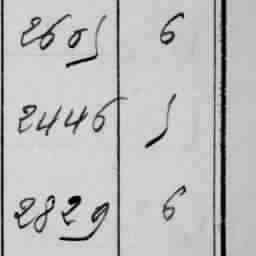 2605 6
2446 5
2829 6